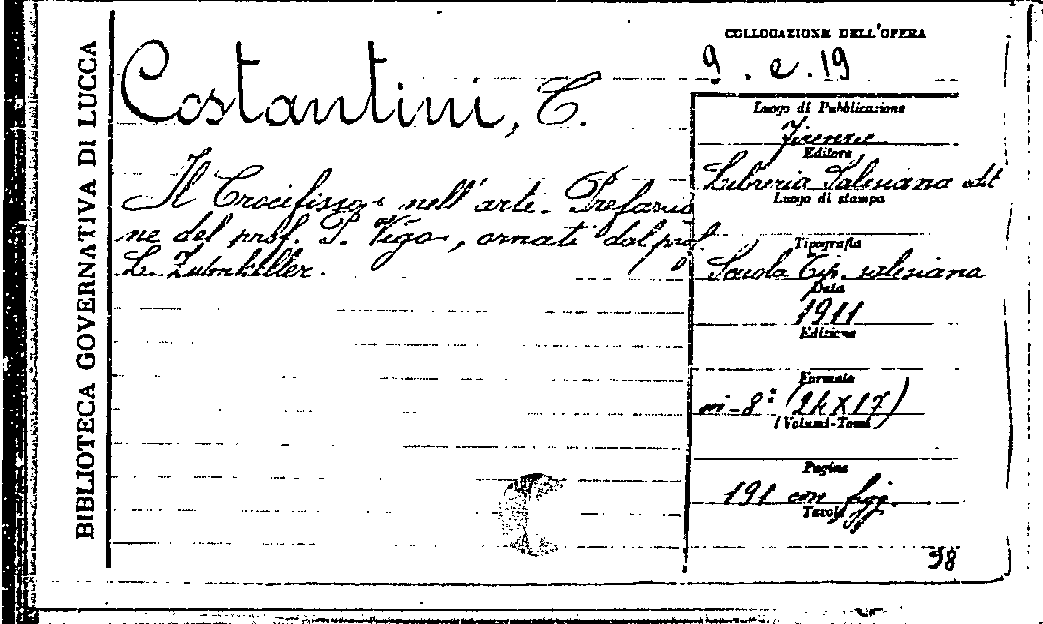 BIBLIOTECA GOVERNATIVA DI LUCCA
COLLOCAZIONE DELL'OPERA
9. e. 19
Costantini, C.
Il Crocifisso nell'arte. Prefazio
ne del prof. P. Vigo, ornati dal prof.
L. Zumkeller.
Luogo di Pubblicazione
Firenze
Editore
Libreria Salesiana edit
Luogo di stampa
Tipografia
Scuola Tip. salesiana
Data
1911
Edizione
Formato
in-8° (24 X 17)
(Volumi-Tomi)
Pagine
191 con figg.
Tavole
98